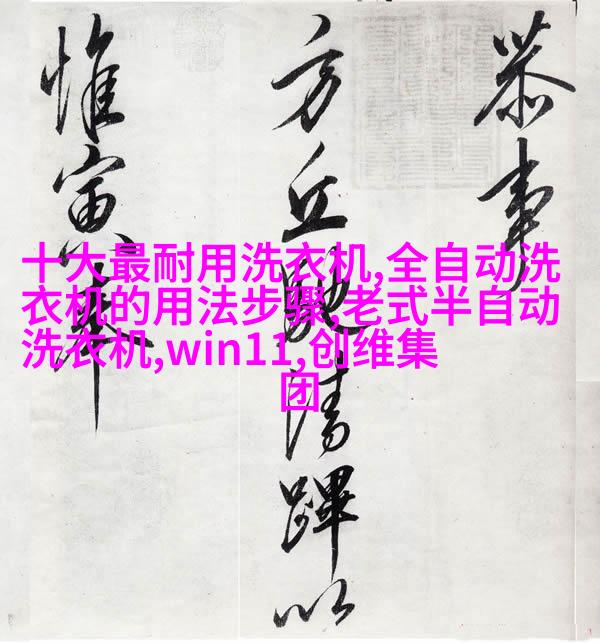 恭事
方丘清蹕以
惟寅
十大最耐用洗衣机,全自动洗
衣机的用法步骤,老式半自动
洗衣机,win11,创维集
团